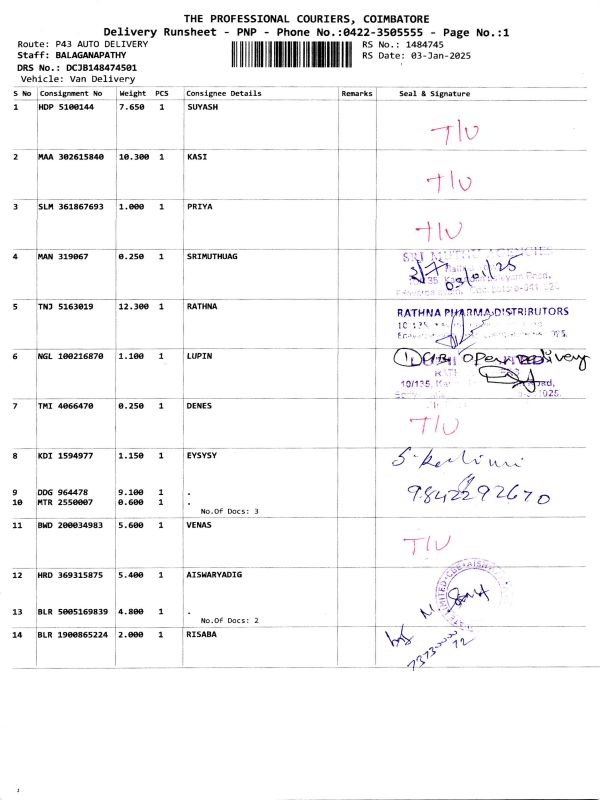 THE PROFESSIONAL COURIERS, COIMBATORE
Delivery Runsheet - PNP - Phone No.:0422-3505555 - Page No.:1
Route: P43 AUTO DELIVERY RS No.: 1484745
Staff: BALAGANAPATHY RS Date: 03-Jan-2025
DRS No.: DCJB148474501
Vehicle: Van Delivery
S No Consignment No Weight PCS Consignee Details Remarks Seal & Signature
1 HDP 5100144 7.650 1 SUYASH
T/U
2 MAA 302615840 10.300 1 KASI
T/U
3 SLM 361867693 1.000 1 PRIYA
T/U
4 MAN 319067 0.250 1 SRIMUTHUAG
03/01/25
5 TNJ 5163019 12.300 1 RATHNA RATHNA PHARMA DISTRIBUTORS
6 NGL 100216870 1.100 1 LUPIN
open delivery
10/135,
7 TMI 4066470 0.250 1 DENES
T/U
8 KDI 1594977 1.150 1 EYSYSY
9 DDG 964478 9.100 1 . 9842292670
10 MTR 2550007 0.600 1 .
No.Of Docs: 3
11 BWD 200034983 5.600 1 VENAS
T/U
12 HRD 369315875 5.400 1 AISWARYADIG
13 BLR 5005169839 4.800 1 .
No.Of Docs: 2
14 BLR 1900865224 2.000 1 RISABA